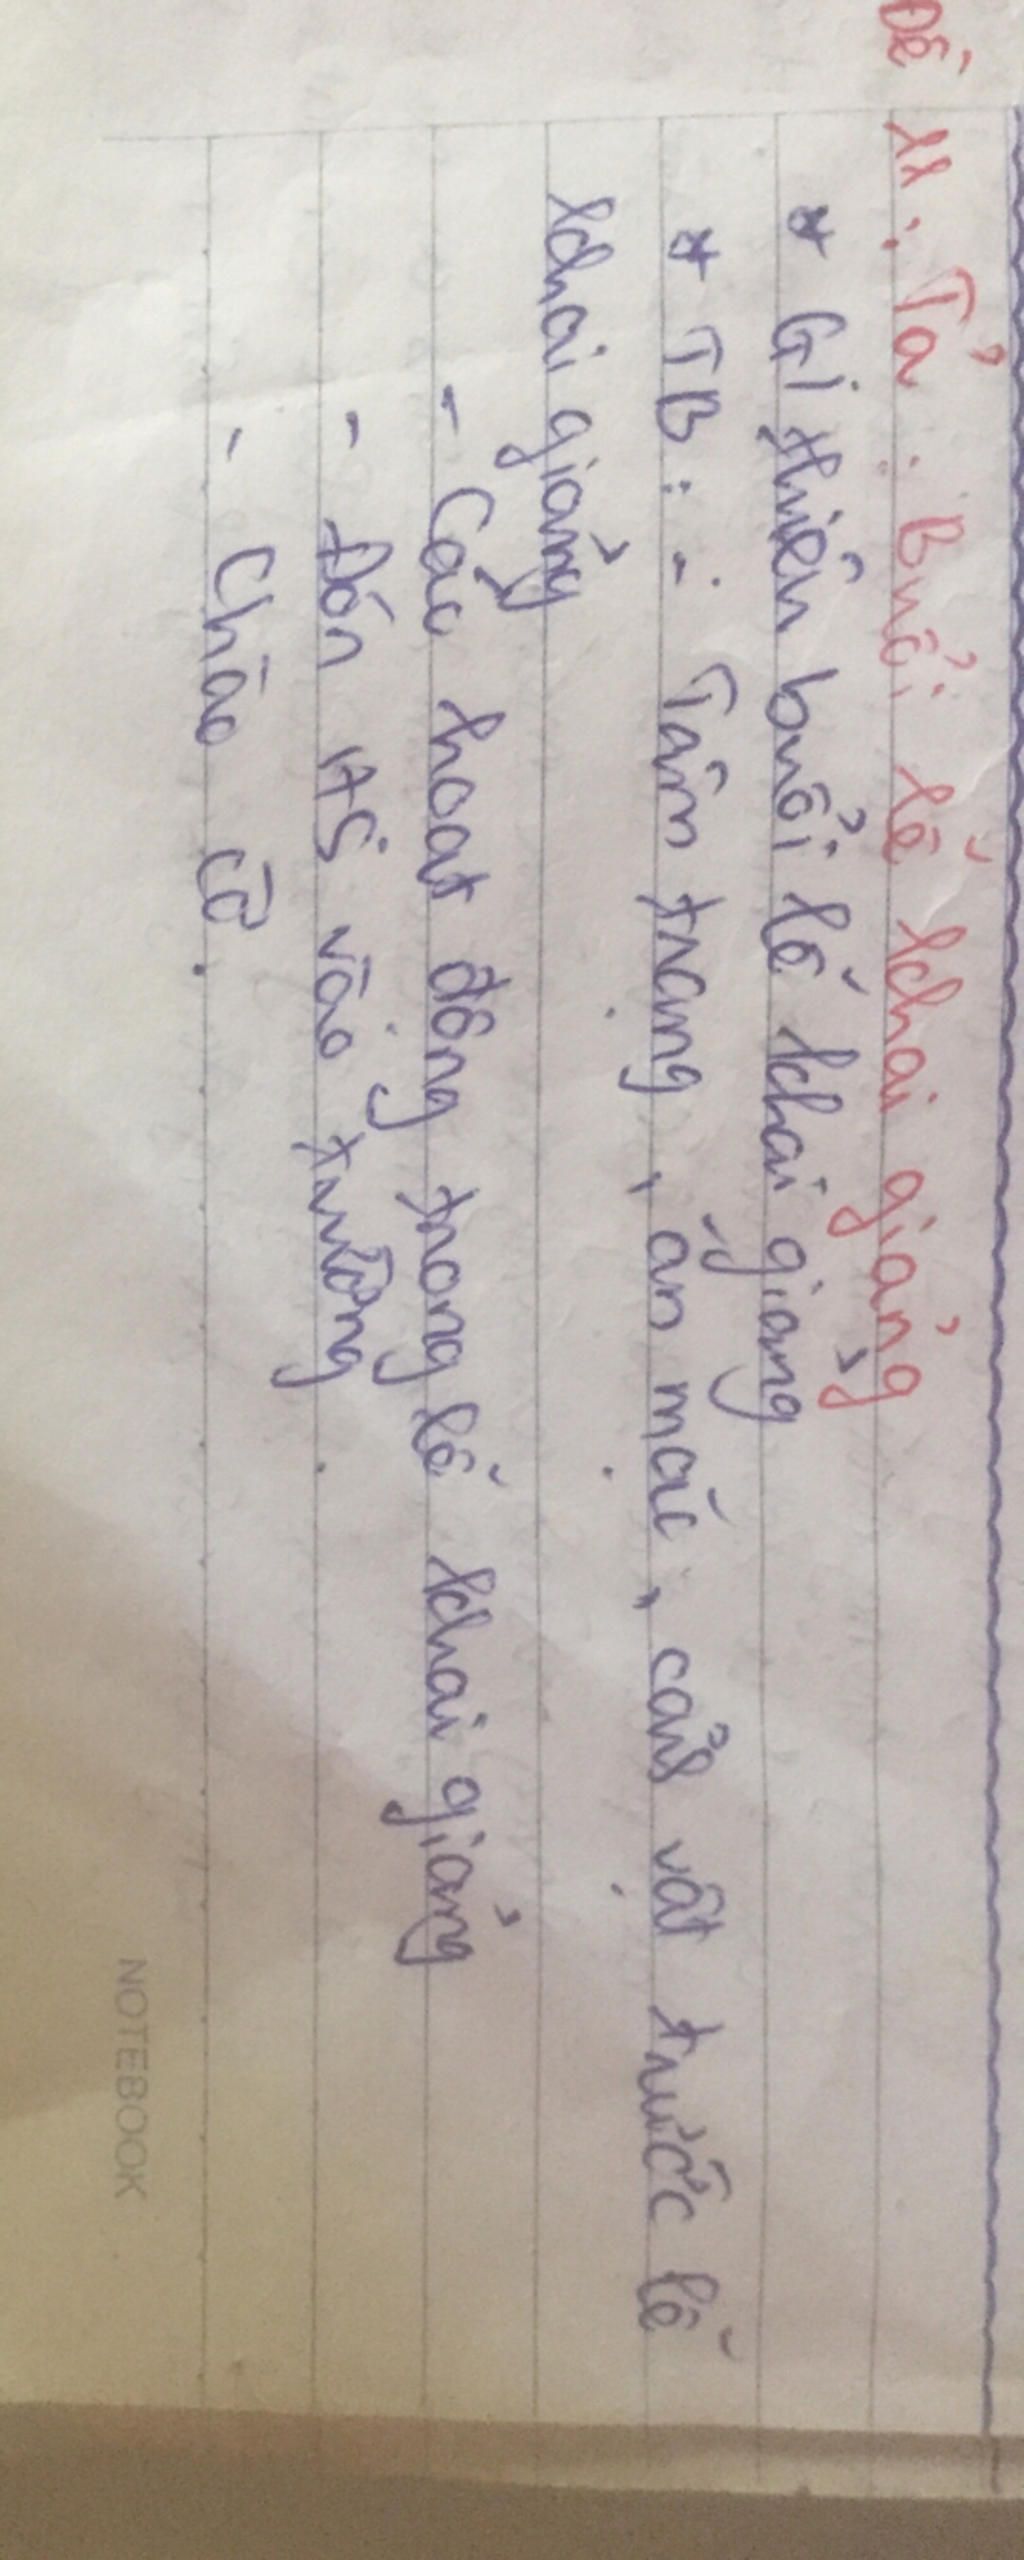 Đề 11: Tả: Buổi lễ khai giảng
* Giới thiệu buổi lễ khai giảng
* TB: - Tâm trạng, ăn mặc, cảnh vật trước lễ
khai giảng
- Các hoạt động trong lễ khai giảng
- Đón HS vào trường
- Chào cờ.
NOTEBOOK